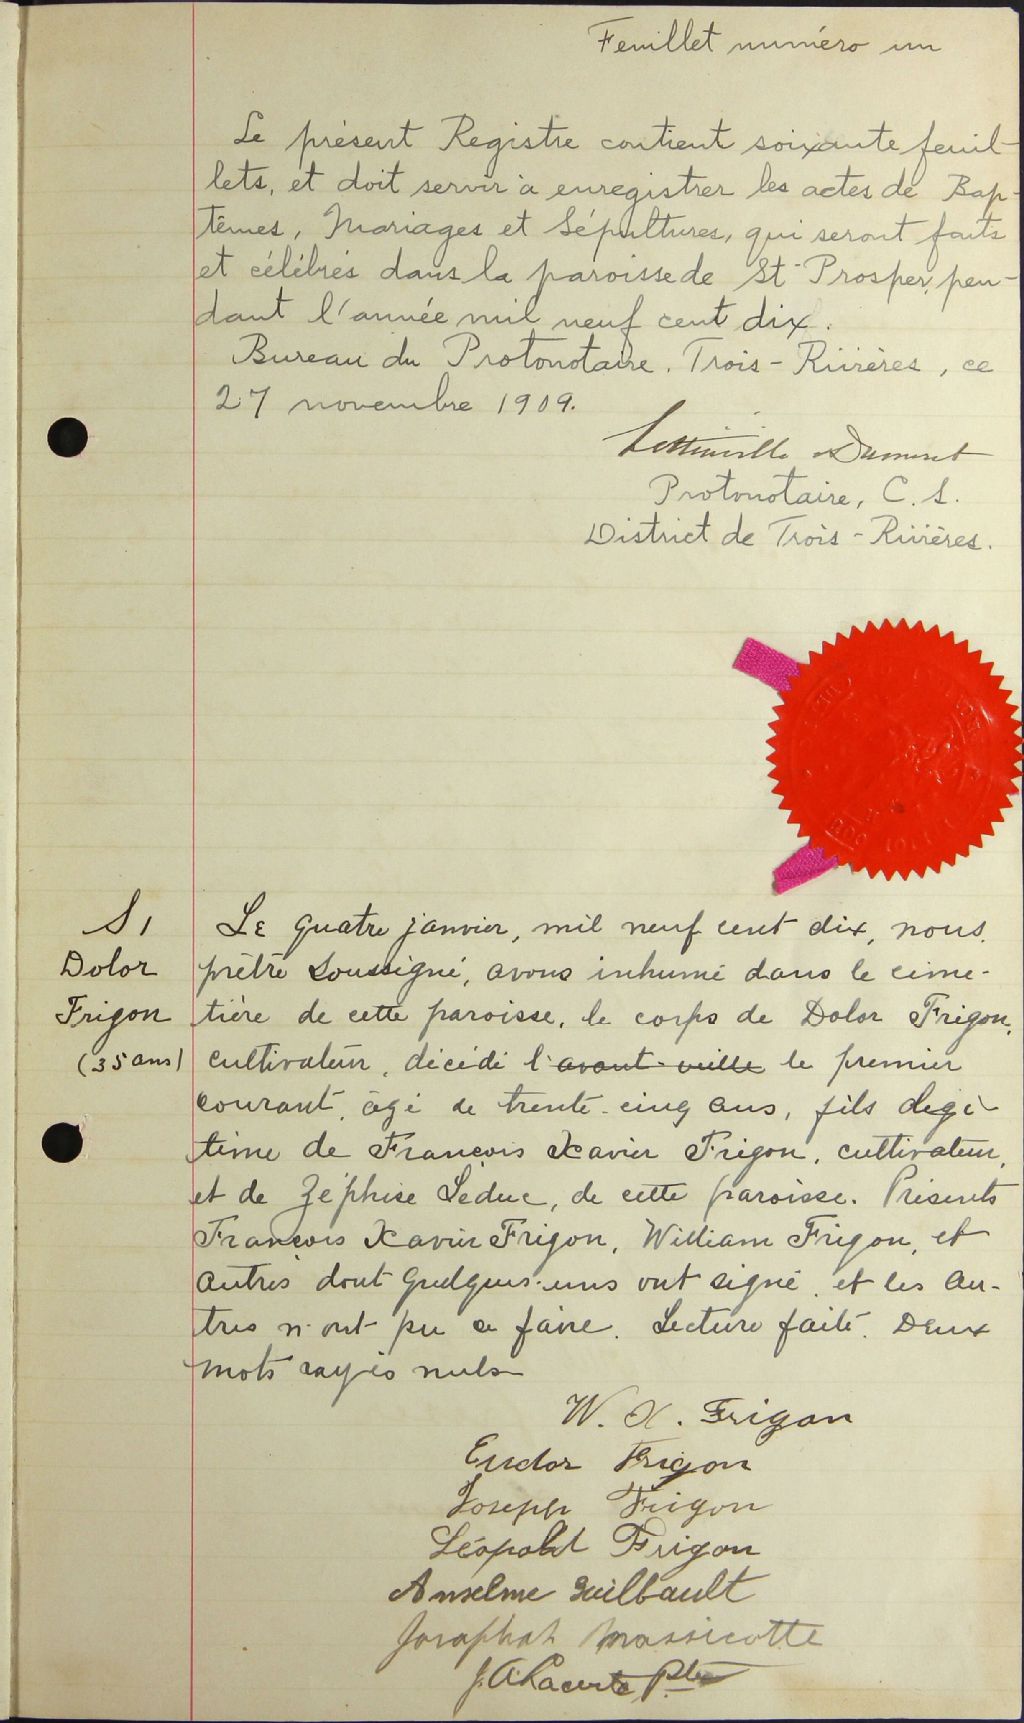 Feuillet numéro un
Le présent Registre contient soixante feuil-
lets, et doit servir à enregistrer les actes de Bap-
têmes, Mariages et Sépultures, qui seront faits
et célébrés dans la paroisse de St-Prosper, pen-
dant l'année mil neuf cent dix.
Bureau du Protonotaire, Trois-Rivières, ce
27 novembre 1909.
Protonotaire, C. S.
District de Trois-Rivières.
S1
Dolor
Frigon
(35 ans)
Le quatre janvier, mil neuf cent dix, nous,
prêtre soussigné, avons inhumé dans le cime-
tière de cette paroisse, le corps de Dolor Frigon,
cultivateur, décédé l'avant-veille le premier
courant, âgé de trente-cinq ans, fils légi-
time de François Xavier Frigon, cultivateur,
et de Zéphise Leduc, de cette paroisse. Présents
François Xavier Frigon, William Frigon, et
autres dont quelques-uns ont signé et les au-
tres n'ont pu ce faire. Lecture faite. Deux
mots rayés nuls
W. X. Frigon
Eudor Frigon
Joseph Frigon
Léopold Frigon
Anselme Guilbault
Josaphat Massicotte
J. A. Lacerte Ptre